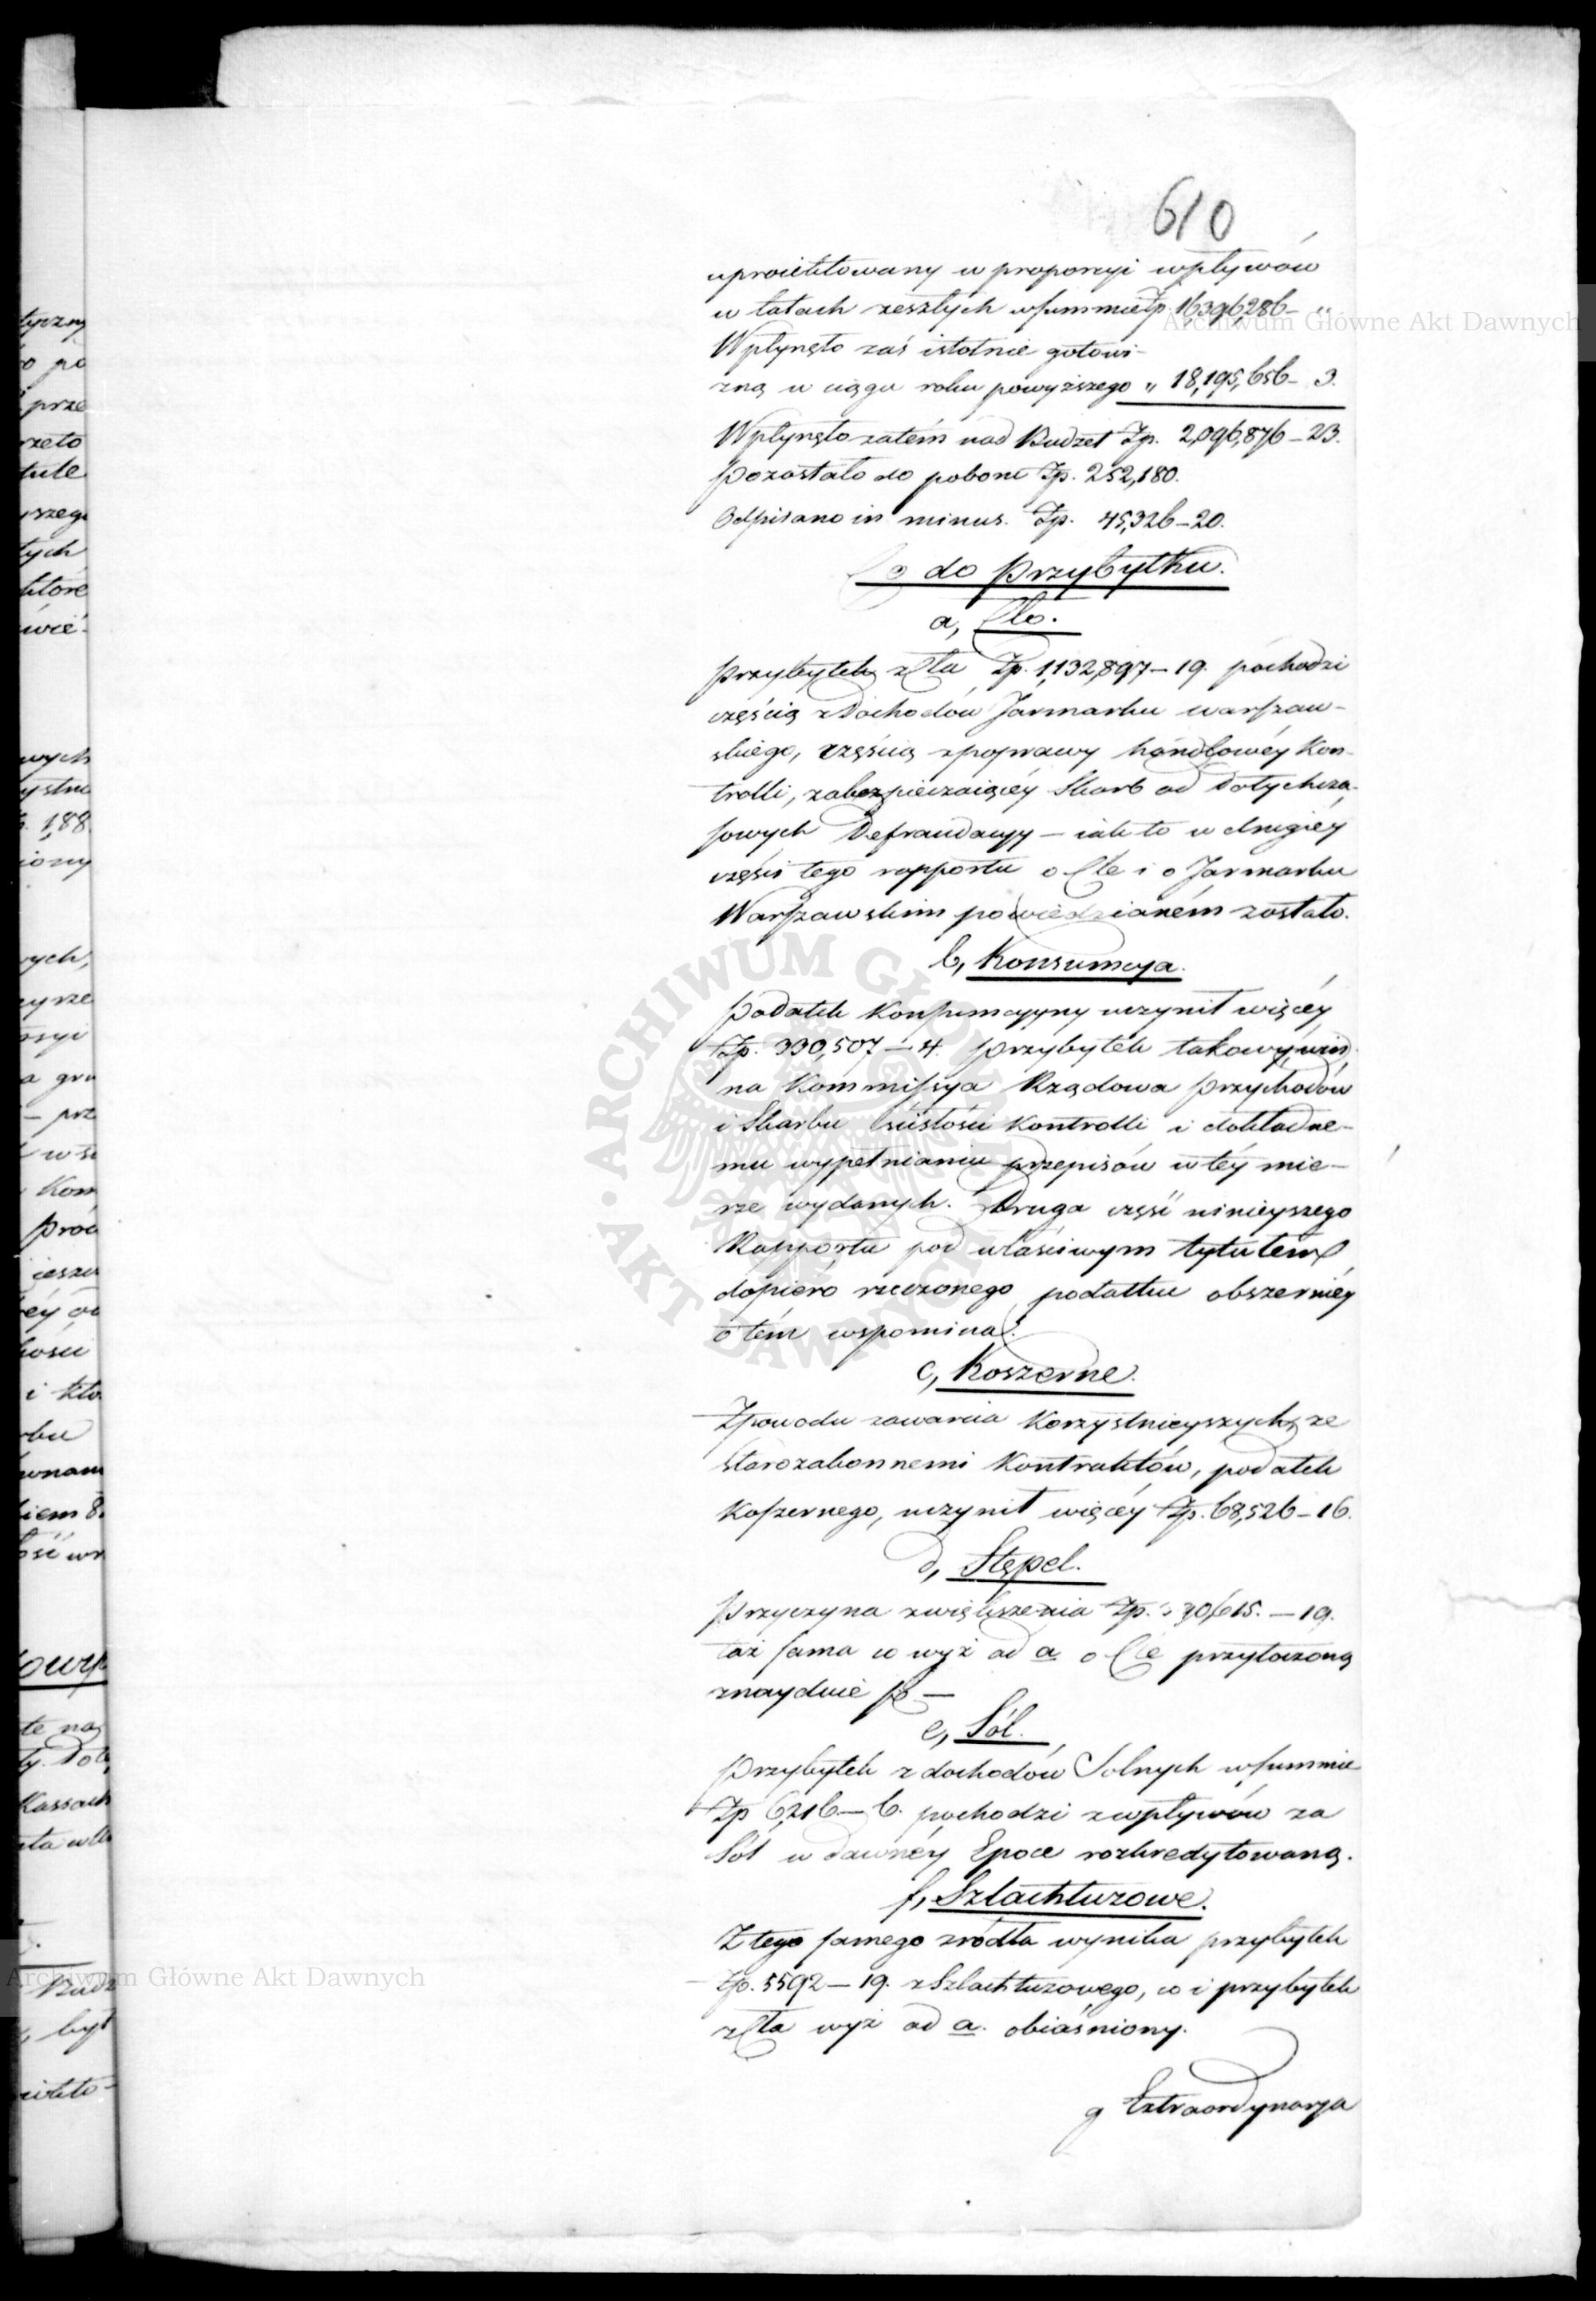 610
uproiektowany w proporcyi wpływów
w latach zeszłych w summie Zp. 16,396,286 – "
Wpłynęło zaś istotnie gotowi-
zną w ciągu roku powyższego " 18,195,656 – 3.
Wpłynęło zatém nad Budżet Zp. 2,096,876 – 23.
Pozostało do poboru Zp. 252,180.
Odpisano in minus. Zp. 45,326 – 20.
Co do Przybytku.
a, Cło.
Przybytek z Cła Zp. 1,132,897 – 19. pochodzi
częścią z Dochodów Jarmarku warszaw-
skiego, częścią z poprawy handlowéy Kon-
trolli, zabezpieczaiącéy Skarb od dotychcza-
sowych Defraudacyy – iak to w drugiéy
części tego rapportu o Cle i o Jarmarku
Warszawskim powiedzianém zostało.
b, Konsumcya.
Podatek Konsumcyyny uczynił więcéy
Zp. 330,507 – 4. Przybytek takowy, win-
na Kommissya Rządowa Przychodów
i Skarbu ścisłości Kontrolli i dokładne-
mu wypełnianiu przepisów w téy mie-
rze wydanych. Druga część ninieyszego
Rapportu pod właściwym tytułem
dopiero rzeczonego podatku obszerniéy
o tém wspomina.
c, Koszerne.
Z powodu zawarcia Korzystnieyszych ze
starozakonnemi Kontraktów, podatek
Koszernego, uczynił więcéy Zp. 68,526 – 16.
d, Stępel.
Przyczyna zwiększenia Zp. 30,615. – 19.
taż sama co wyż ad a o Cle przytoczoną
znayduie się –
e, Sól.
Przybytek z dochodów Solnych w summie
Zp 6,216 – 6. pochodzi z wpływów za
Sól w dawnéy Epoce rozkredytowaną.
f, Szlachtuzowe.
Z tego samego zródła wynika przybytek
Zp. 5592 – 19. z Szlachtuzowego, co i przybytek
z Cła wyż ad a. obiaśniony.
g Extraordynarya
Archiwum Główne Akt Dawnych
Archiwum Główne Akt Dawnych
ARCHIWUM GŁÓWNE AKT DAWNYCH